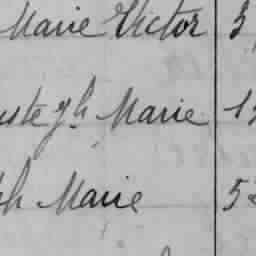 Marie Victor 3
uste Jh Marie 1
ph Marie 5